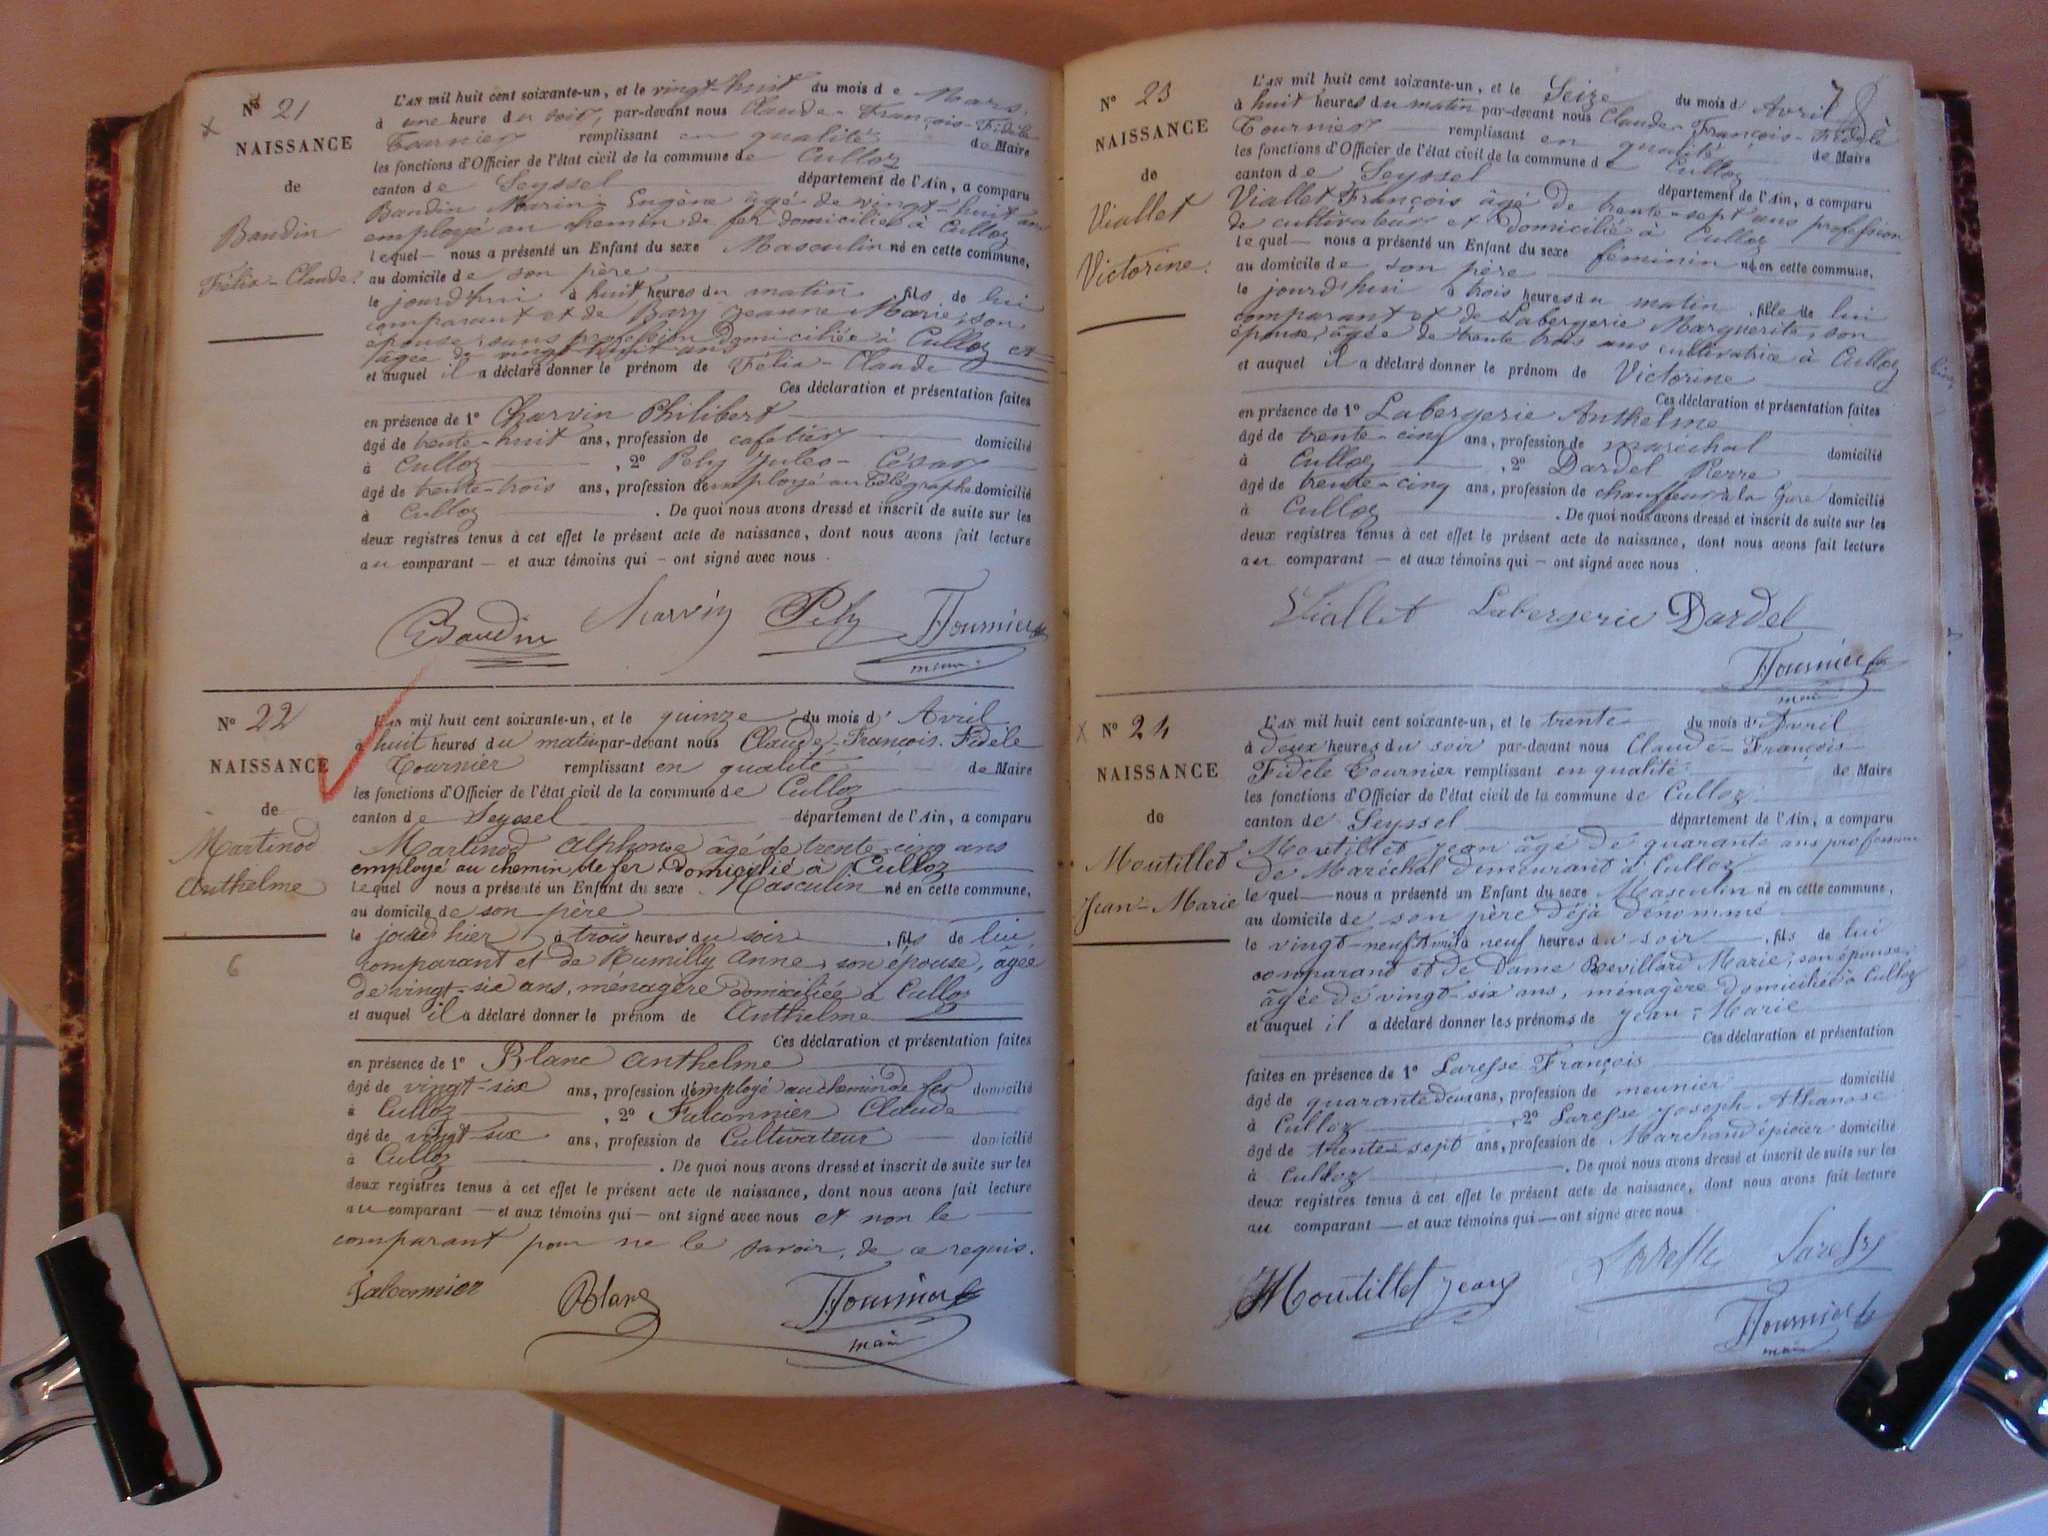 N° 21
NAISSANCE
de
Baudin
Félix-Claude.
L'AN mil huit cent soixante-un, et le vingt-huit du mois de Mars,
à une heure du soir, par-devant nous Claude-François-Fidèle
Tournier remplissant en qualité de Maire
les fonctions d'Officier de l'état civil de la commune de Culloz
canton de Seyssel département de l'Ain, a comparu
Baudin Marin-Eugène âgé de vingt-huit ans
employé au chemin de fer domicilié à Culloz
lequel nous a présenté un Enfant du sexe Masculin né en cette commune,
au domicile de son père
le jourd'hui à huit heures du matin, fils de lui
comparant et de Bary Jeanne Marie, son
épouse, sans profession domiciliée à Culloz et
âgée de vingt huit ans
et auquel il a déclaré donner le prénom de Félix-Claude
Ces déclaration et présentation faites
en présence de 1° Charvin Philibert
âgé de trente-huit ans, profession de cafetier domicilié
à Culloz, 2° Pely Jules-César
âgé de trente-trois ans, profession de employé au télégraphe domicilié
à Culloz. De quoi nous avons dressé et inscrit de suite sur les
deux registres tenus à cet effet le présent acte de naissance, dont nous avons fait lecture
au comparant — et aux témoins qui — ont signé avec nous.
Baudin Charvin Pely Tournier
maire
N° 22
NAISSANCE
de
Martinod
Anthelme
6
L'AN mil huit cent soixante-un, et le quinze du mois d'Avril
à huit heures du matin par-devant nous Claude-François-Fidèle
Tournier remplissant en qualité de Maire
les fonctions d'Officier de l'état civil de la commune de Culloz
canton de Seyssel département de l'Ain, a comparu
Martinod Alphonse âgé de trente-cinq ans
employé au chemin de fer domicilié à Culloz
lequel nous a présenté un Enfant du sexe Masculin né en cette commune,
au domicile de son père
le jour d'hier à trois heures du soir, fils de lui
comparant et de Rumilly Anne, son épouse, âgée
de vingt-six ans, ménagère domiciliée à Culloz
et auquel il a déclaré donner le prénom de Anthelme
Ces déclaration et présentation faites
en présence de 1° Blanc Anthelme
âgé de vingt-six ans, profession d'employé au chemin de fer domicilié
à Culloz, 2° Falconnier Claude
âgé de vingt-six ans, profession de Cultivateur domicilié
à Culloz. De quoi nous avons dressé et inscrit de suite sur les
deux registres tenus à cet effet le présent acte de naissance, dont nous avons fait lecture
au comparant — et aux témoins qui — ont signé avec nous et non le
comparant pour ne le savoir, de ce requis.
Falconnier Blanc Tournier
maire
N° 23
NAISSANCE
de
Viallet
Victorine.
L'AN mil huit cent soixante-un, et le Seize du mois d'Avril
à huit heures du matin par-devant nous Claude-François-Fidèle
Tournier remplissant en qualité de Maire
les fonctions d'Officier de l'état civil de la commune de Culloz
canton de Seyssel département de l'Ain, a comparu
Viallet François âgé de trente-sept ans profession
de cultivateur et domicilié à Culloz
lequel — nous a présenté un Enfant du sexe féminin né en cette commune,
au domicile de son père
le jourd'hui à trois heures du matin, fille de lui
comparant et de Labergerie Marguerite, son
épouse, âgée de trente trois ans cultivatrice à Culloz
et auquel il a déclaré donner le prénom de Victorine
Ces déclaration et présentation faites
en présence de 1° Labergerie Anthelme
âgé de trente-cinq ans, profession de maréchal domicilié
à Culloz, 2° Dardel Pierre
âgé de trente-cinq ans, profession de chauffeur à la Gare domicilié
à Culloz. De quoi nous avons dressé et inscrit de suite sur les
deux registres tenus à cet effet le présent acte de naissance, dont nous avons fait lecture
au comparant — et aux témoins qui — ont signé avec nous.
Viallet Labergerie Dardel
Tournier
maire
N° 24
NAISSANCE
de
Moutillet
Jean-Marie
L'AN mil huit cent soixante-un, et le trente du mois d'Avril
à deux heures du soir par-devant nous Claude-François
Fidèle Tournier remplissant en qualité de Maire
les fonctions d'Officier de l'état civil de la commune de Culloz
canton de Seyssel département de l'Ain, a comparu
Moutillet Jean âgé de quarante ans profession
de Maréchal demeurant à Culloz
lequel — nous a présenté un Enfant du sexe Masculin né en cette commune,
au domicile de son père déjà dénommé
le vingt-neuf Avril à neuf heures du soir, fils de lui
comparant et de Dame Bevillard Marie, son épouse,
âgée de vingt-six ans, ménagère domiciliée à Culloz
et auquel il a déclaré donner les prénoms de Jean-Marie
Ces déclaration et présentation
faites en présence de 1° Laresse François
âgé de quarante deux ans, profession de meunier domicilié
à Culloz, 2° Laresse Joseph Athanase
âgé de trente-sept ans, profession de Marchand épicier domicilié
à Culloz. De quoi nous avons dressé et inscrit de suite sur les
deux registres tenus à cet effet le présent acte de naissance, dont nous avons fait lecture
au comparant — et aux témoins qui — ont signé avec nous
Moutillet Jean Laresse Laresse
Tournier
maire